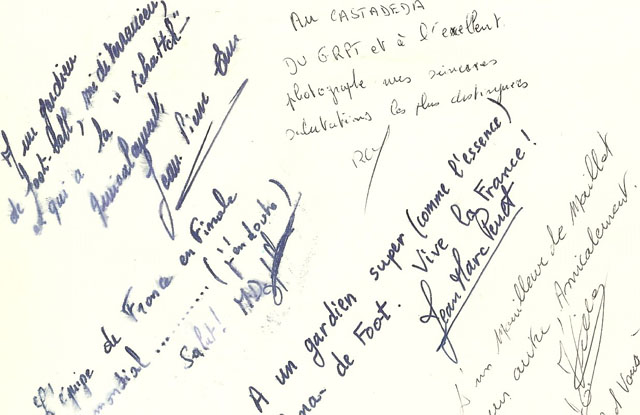 A un gardien
de foot-ball, méditerranéen,
et qui a la "tchatch"
Amicalement,
Jean Pierre
Au CASTADEDA
DU GRPT et à l'excellent
photographe mes sincères
salutations les plus distinguées
L'équipe de France en Finale
mondial .......... (j'en doute)
Salut!
A un gardien super (comme l'essence)
de Foot. Vive la France!
Jean Marc Penot
A un Mailleur de Maillet
un autre, Amicalement.